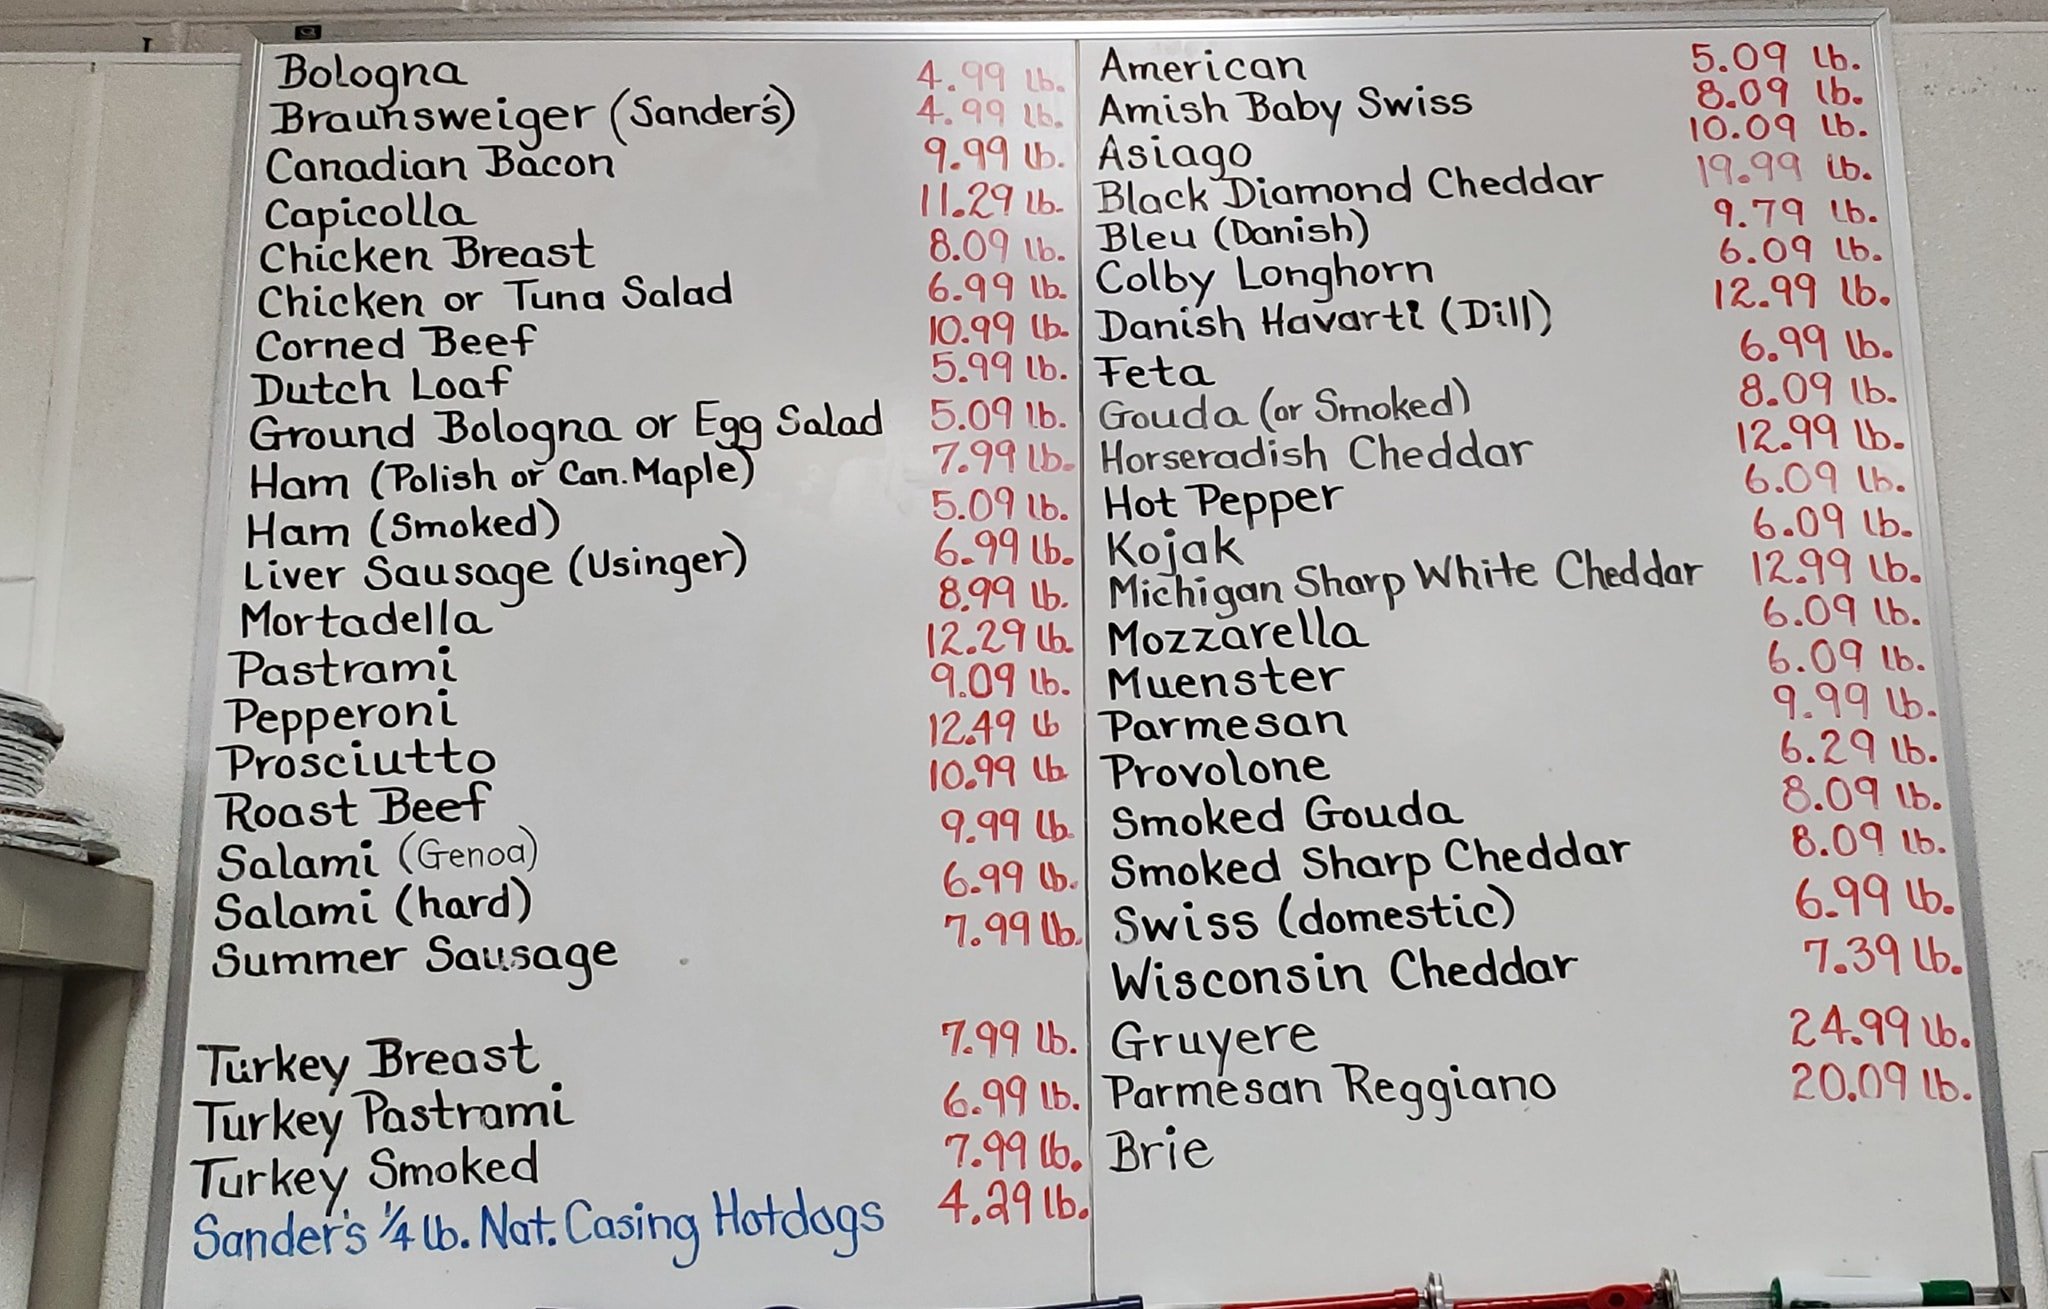 Bologna 4.99 lb.
Braunsweiger (Sander's) 4.99 lb.
Canadian Bacon 9.99 lb.
Capicolla 11.29 lb.
Chicken Breast 8.09 lb.
Chicken or Tuna Salad 6.99 lb.
Corned Beef 10.99 lb.
Dutch Loaf 5.99 lb.
Ground Bologna or Egg Salad 5.09 lb.
Ham (Polish or Can. Maple) 7.99 lb.
Ham (Smoked) 5.09 lb.
Liver Sausage (Usinger) 6.99 lb.
Mortadella 8.99 lb.
Pastrami 12.29 lb.
Pepperoni 9.09 lb.
Prosciutto 12.49 lb
Roast Beef 10.99 lb
Salami (Genoa) 9.99 lb
Salami (hard) 6.99 lb.
Summer Sausage 7.99 lb.
Turkey Breast 7.99 lb.
Turkey Pastrami 6.99 lb.
Turkey Smoked 7.99 lb.
Sander's 1/4 lb. Nat. Casing Hotdogs 4.29 lb.
American 5.09 lb.
Amish Baby Swiss 8.09 lb.
Asiago 10.09 lb.
Black Diamond Cheddar 19.99 lb.
Bleu (Danish) 9.79 lb.
Colby Longhorn 6.09 lb.
Danish Havarti (Dill) 12.99 lb.
Feta 6.99 lb.
Gouda (or Smoked) 8.09 lb.
Horseradish Cheddar 12.99 lb.
Hot Pepper 6.09 lb.
Kojak 6.09 lb.
Michigan Sharp White Cheddar 12.99 lb.
Mozzarella 6.09 lb.
Muenster 6.09 lb.
Parmesan 9.99 lb.
Provolone 6.29 lb.
Smoked Gouda 8.09 lb.
Smoked Sharp Cheddar 8.09 lb.
Swiss (domestic) 6.99 lb.
Wisconsin Cheddar 7.39 lb.
Gruyere 24.99 lb.
Parmesan Reggiano 20.09 lb.
Brie